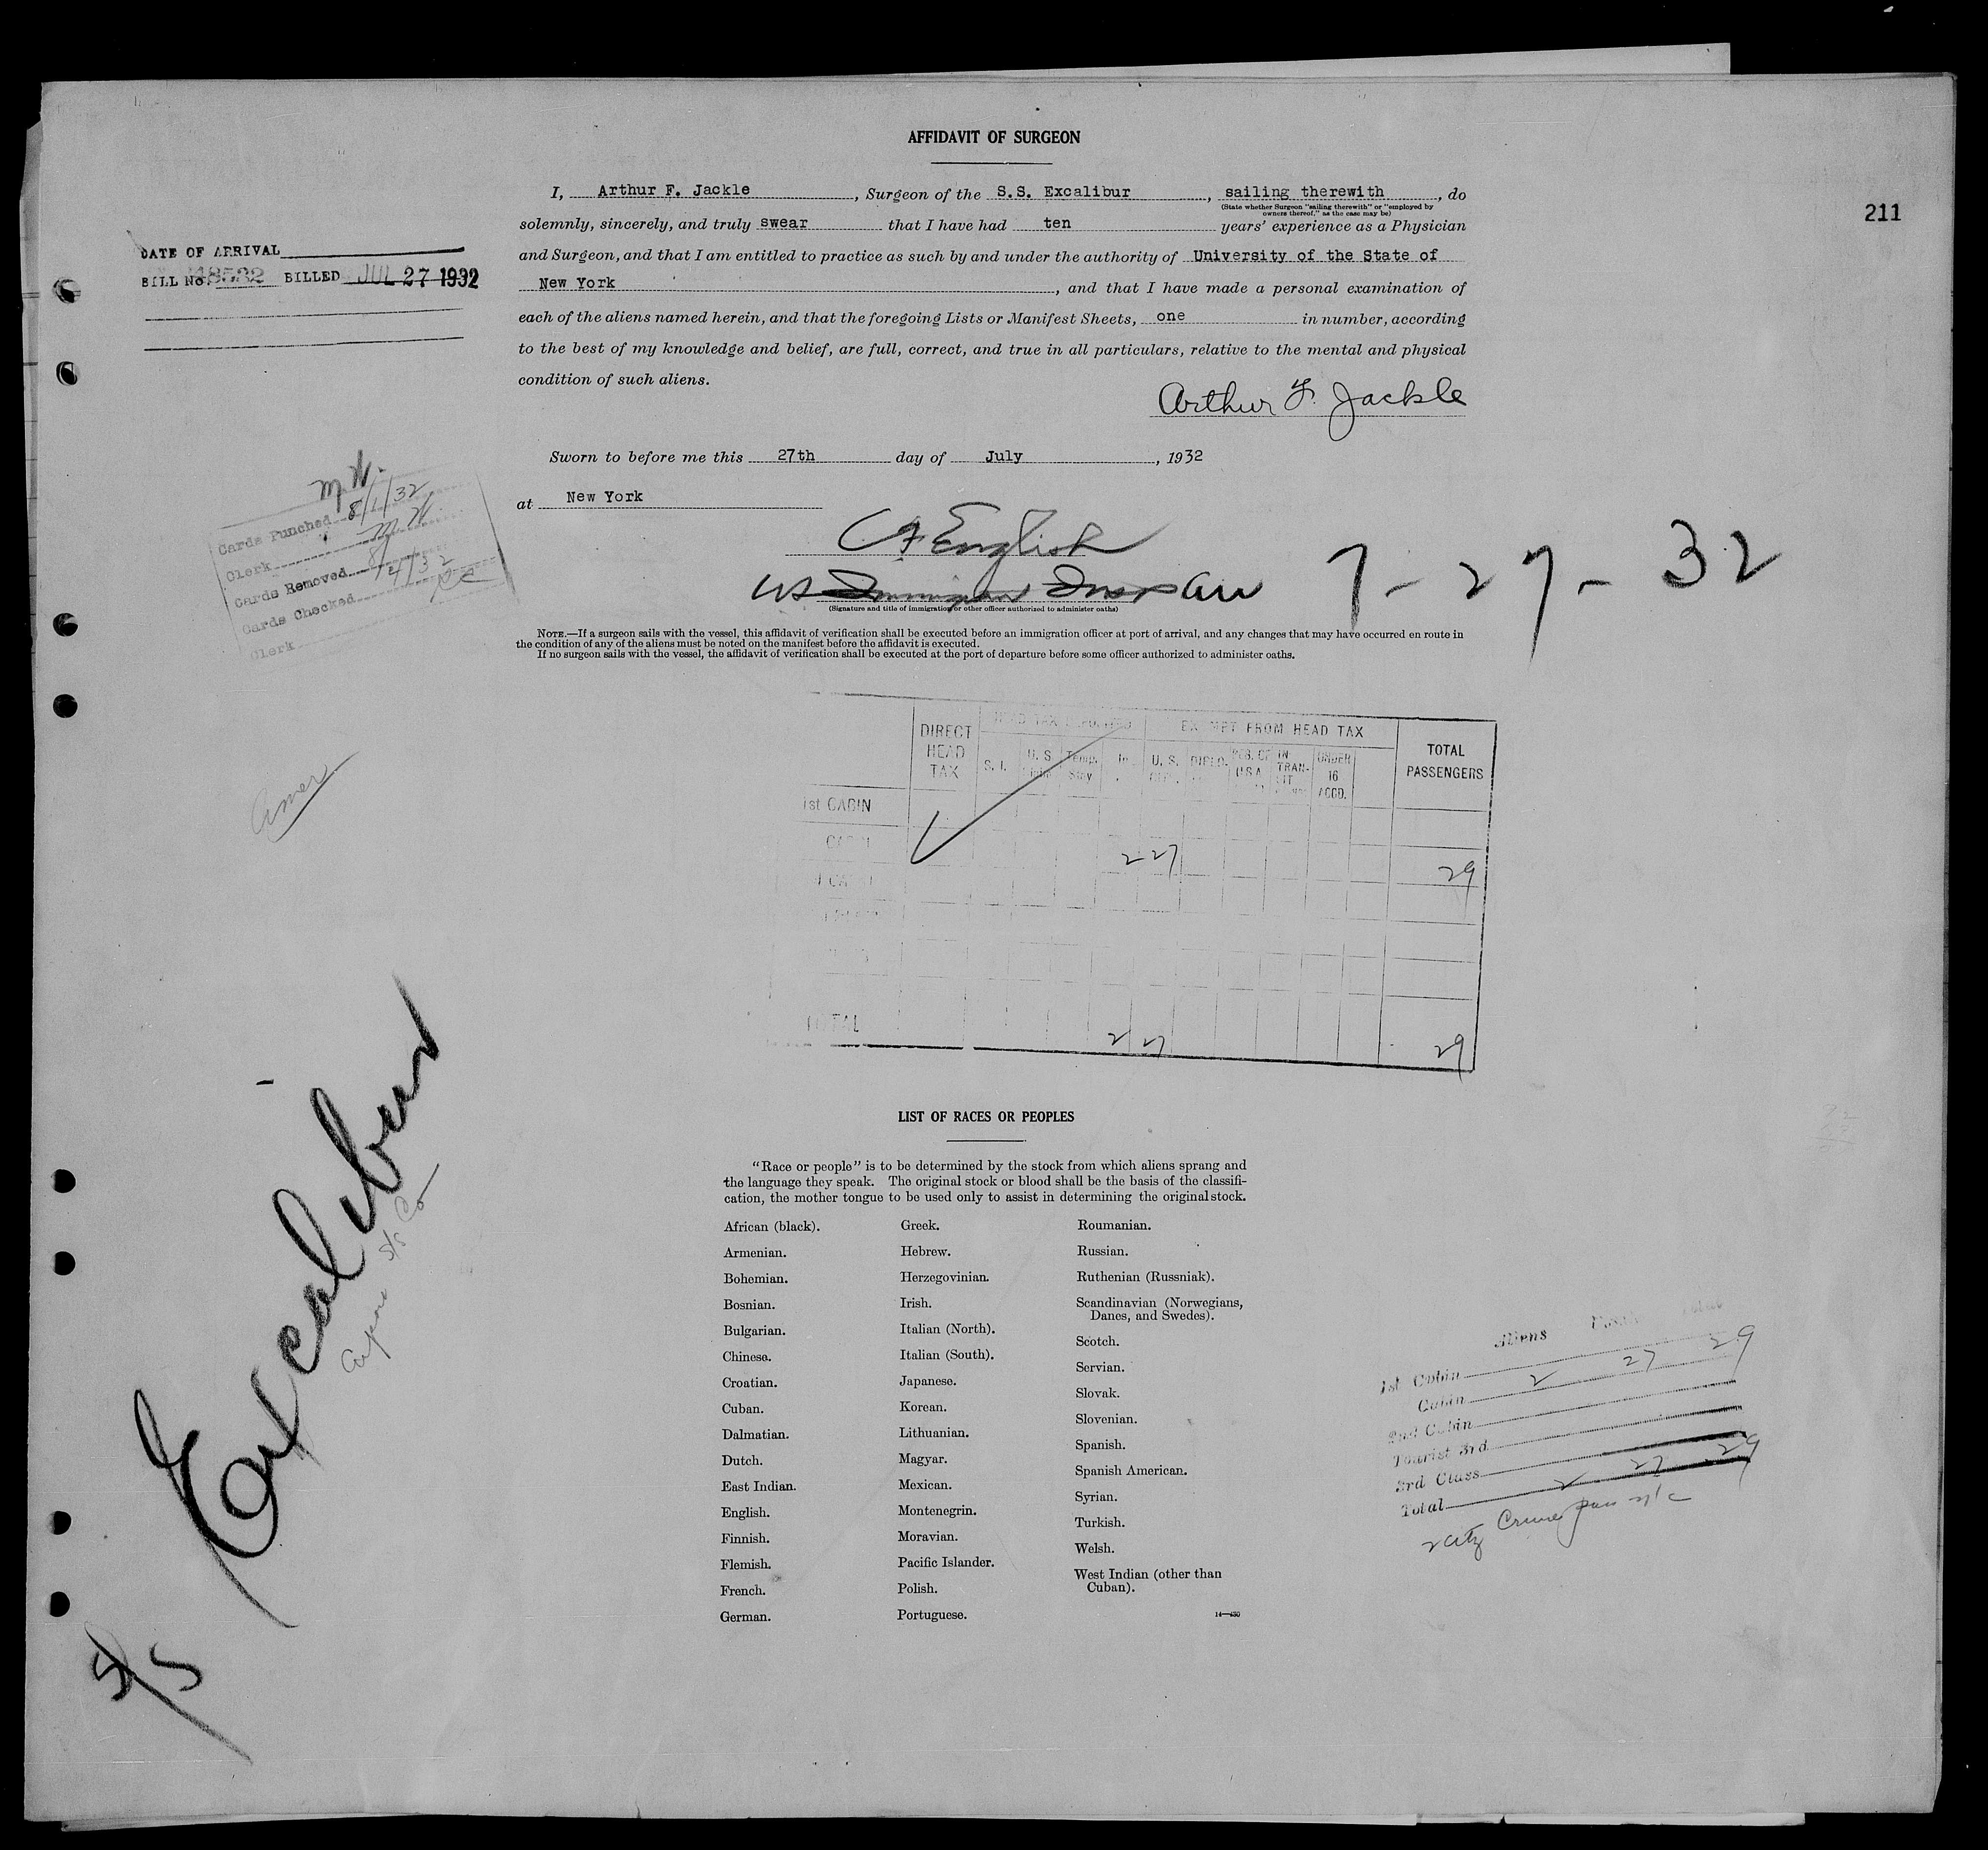 AFFIDAVIT OF SURGEON
211
I, Arthur F. Jackle, Surgeon of the S.S. Excalibur, sailing therewith, do
(State whether Surgeon "sailing therewith" or "employed by
owners thereof," as the case may be)
solemnly, sincerely, and truly swear that I have had ten years' experience as a Physician
and Surgeon, and that I am entitled to practice as such by and under the authority of University of the State of
New York, and that I have made a personal examination of
each of the aliens named herein, and that the foregoing Lists or Manifest Sheets, one in number, according
to the best of my knowledge and belief, are full, correct, and true in all particulars, relative to the mental and physical
condition of such aliens.
Arthur F. Jackle
DATE OF ARRIVAL
BILL No. BILLED JUL 27 1932
Sworn to before me this 27th day of July, 1932
at New York
English
7-27-32
(Signature and title of immigration or other officer authorized to administer oaths)
M H.
Cards Punched 8/1/32
Clerk M H.
Cards Removed
Cards Checked
Clerk
NOTE.—If a surgeon sails with the vessel, this affidavit of verification shall be executed before an immigration officer at port of arrival, and any changes that may have occurred en route in
the condition of any of the aliens must be noted on the manifest before the affidavit is executed.
If no surgeon sails with the vessel, the affidavit of verification shall be executed at the port of departure before some officer authorized to administer oaths.
Amer
DIRECT HEAD TAX
HEAD TAX
EXEMPT FROM HEAD TAX
TOTAL PASSENGERS
S. I. U. S. Temp. Stay In U. S. DIPLO. RES. OF U S A IN TRAN- SIT UNDER 16 ACCD.
1st CABIN
CABIN 2 27 29
TOTAL 2 27 29
Excalibur
S/S Co
S/S
LIST OF RACES OR PEOPLES
"Race or people" is to be determined by the stock from which aliens sprang and
the language they speak. The original stock or blood shall be the basis of the classifi-
cation, the mother tongue to be used only to assist in determining the original stock.
African (black).
Armenian.
Bohemian.
Bosnian.
Bulgarian.
Chinese.
Croatian.
Cuban.
Dalmatian.
Dutch.
East Indian.
English.
Finnish.
Flemish.
French.
German.
Greek.
Hebrew.
Herzegovinian.
Irish.
Italian (North).
Italian (South).
Japanese.
Korean.
Lithuanian.
Magyar.
Mexican.
Montenegrin.
Moravian.
Pacific Islander.
Polish.
Portuguese.
Roumanian.
Russian.
Ruthenian (Russniak).
Scandinavian (Norwegians,
Danes, and Swedes).
Scotch.
Servian.
Slovak.
Slovenian.
Spanish.
Spanish American.
Syrian.
Turkish.
Welsh.
West Indian (other than
Cuban).
14—430
Aliens Total
1st Cabin
Cabin 2 27 29
2nd Cabin
Tourist 3rd
3rd Class
Total 2 27 29